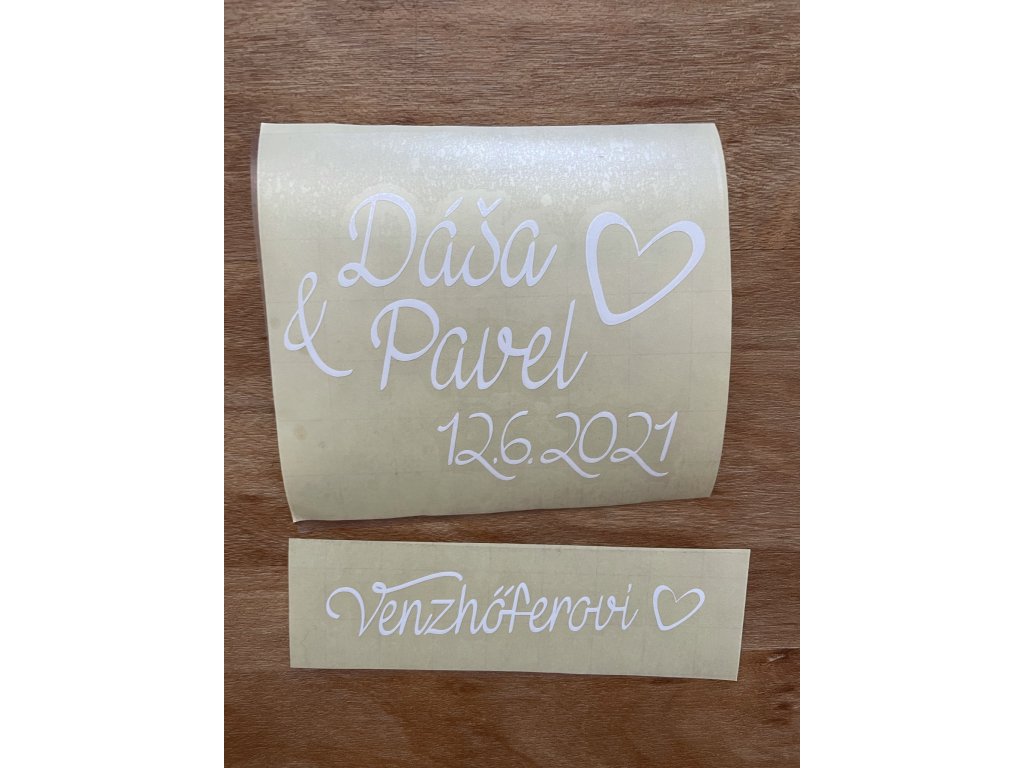 Dáša
& Pavel
12.6.2021
Venzhőferovi